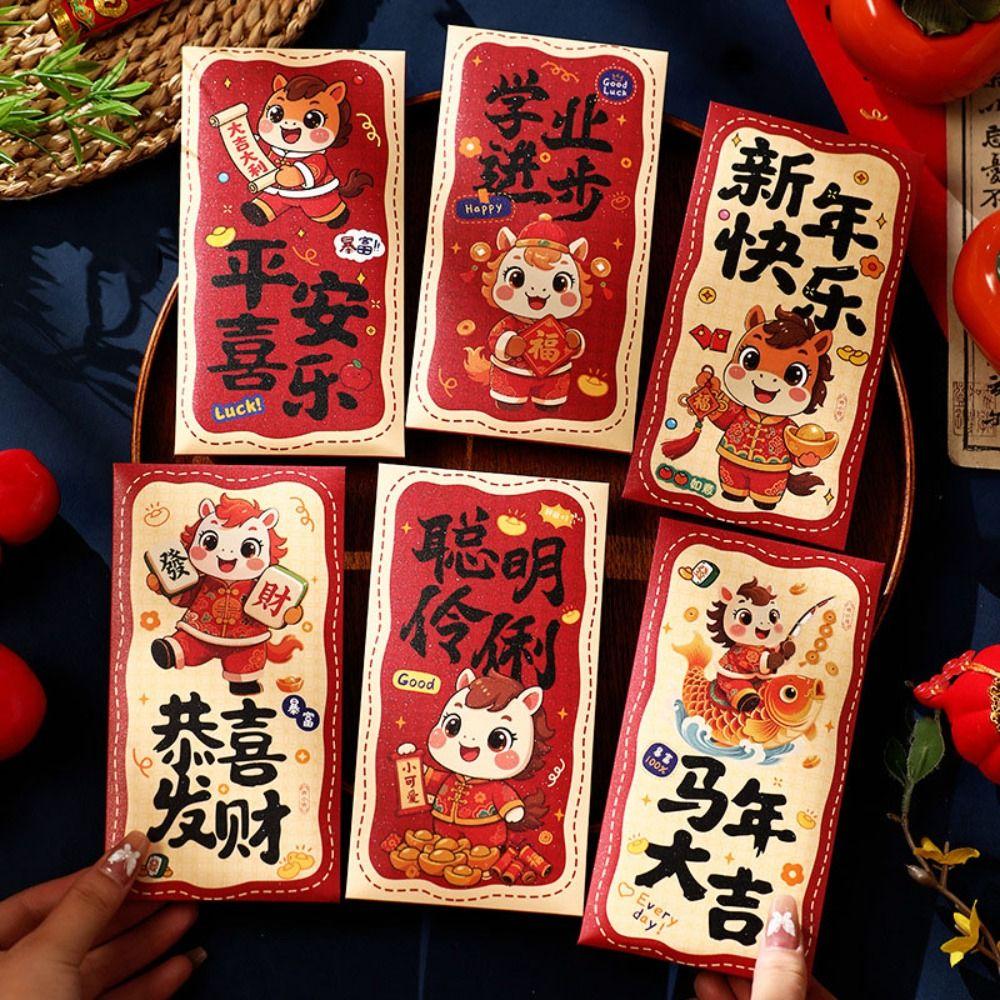 大吉大利
暴富!!
平安
喜乐
Luck!
Good
Luck
学业
进步
Happy
福
新年
快乐
福
如意
發
財
暴富
恭喜
发财
聪明
伶俐
Good
小可爱
暴富
100%
马年
大吉
Every
day!